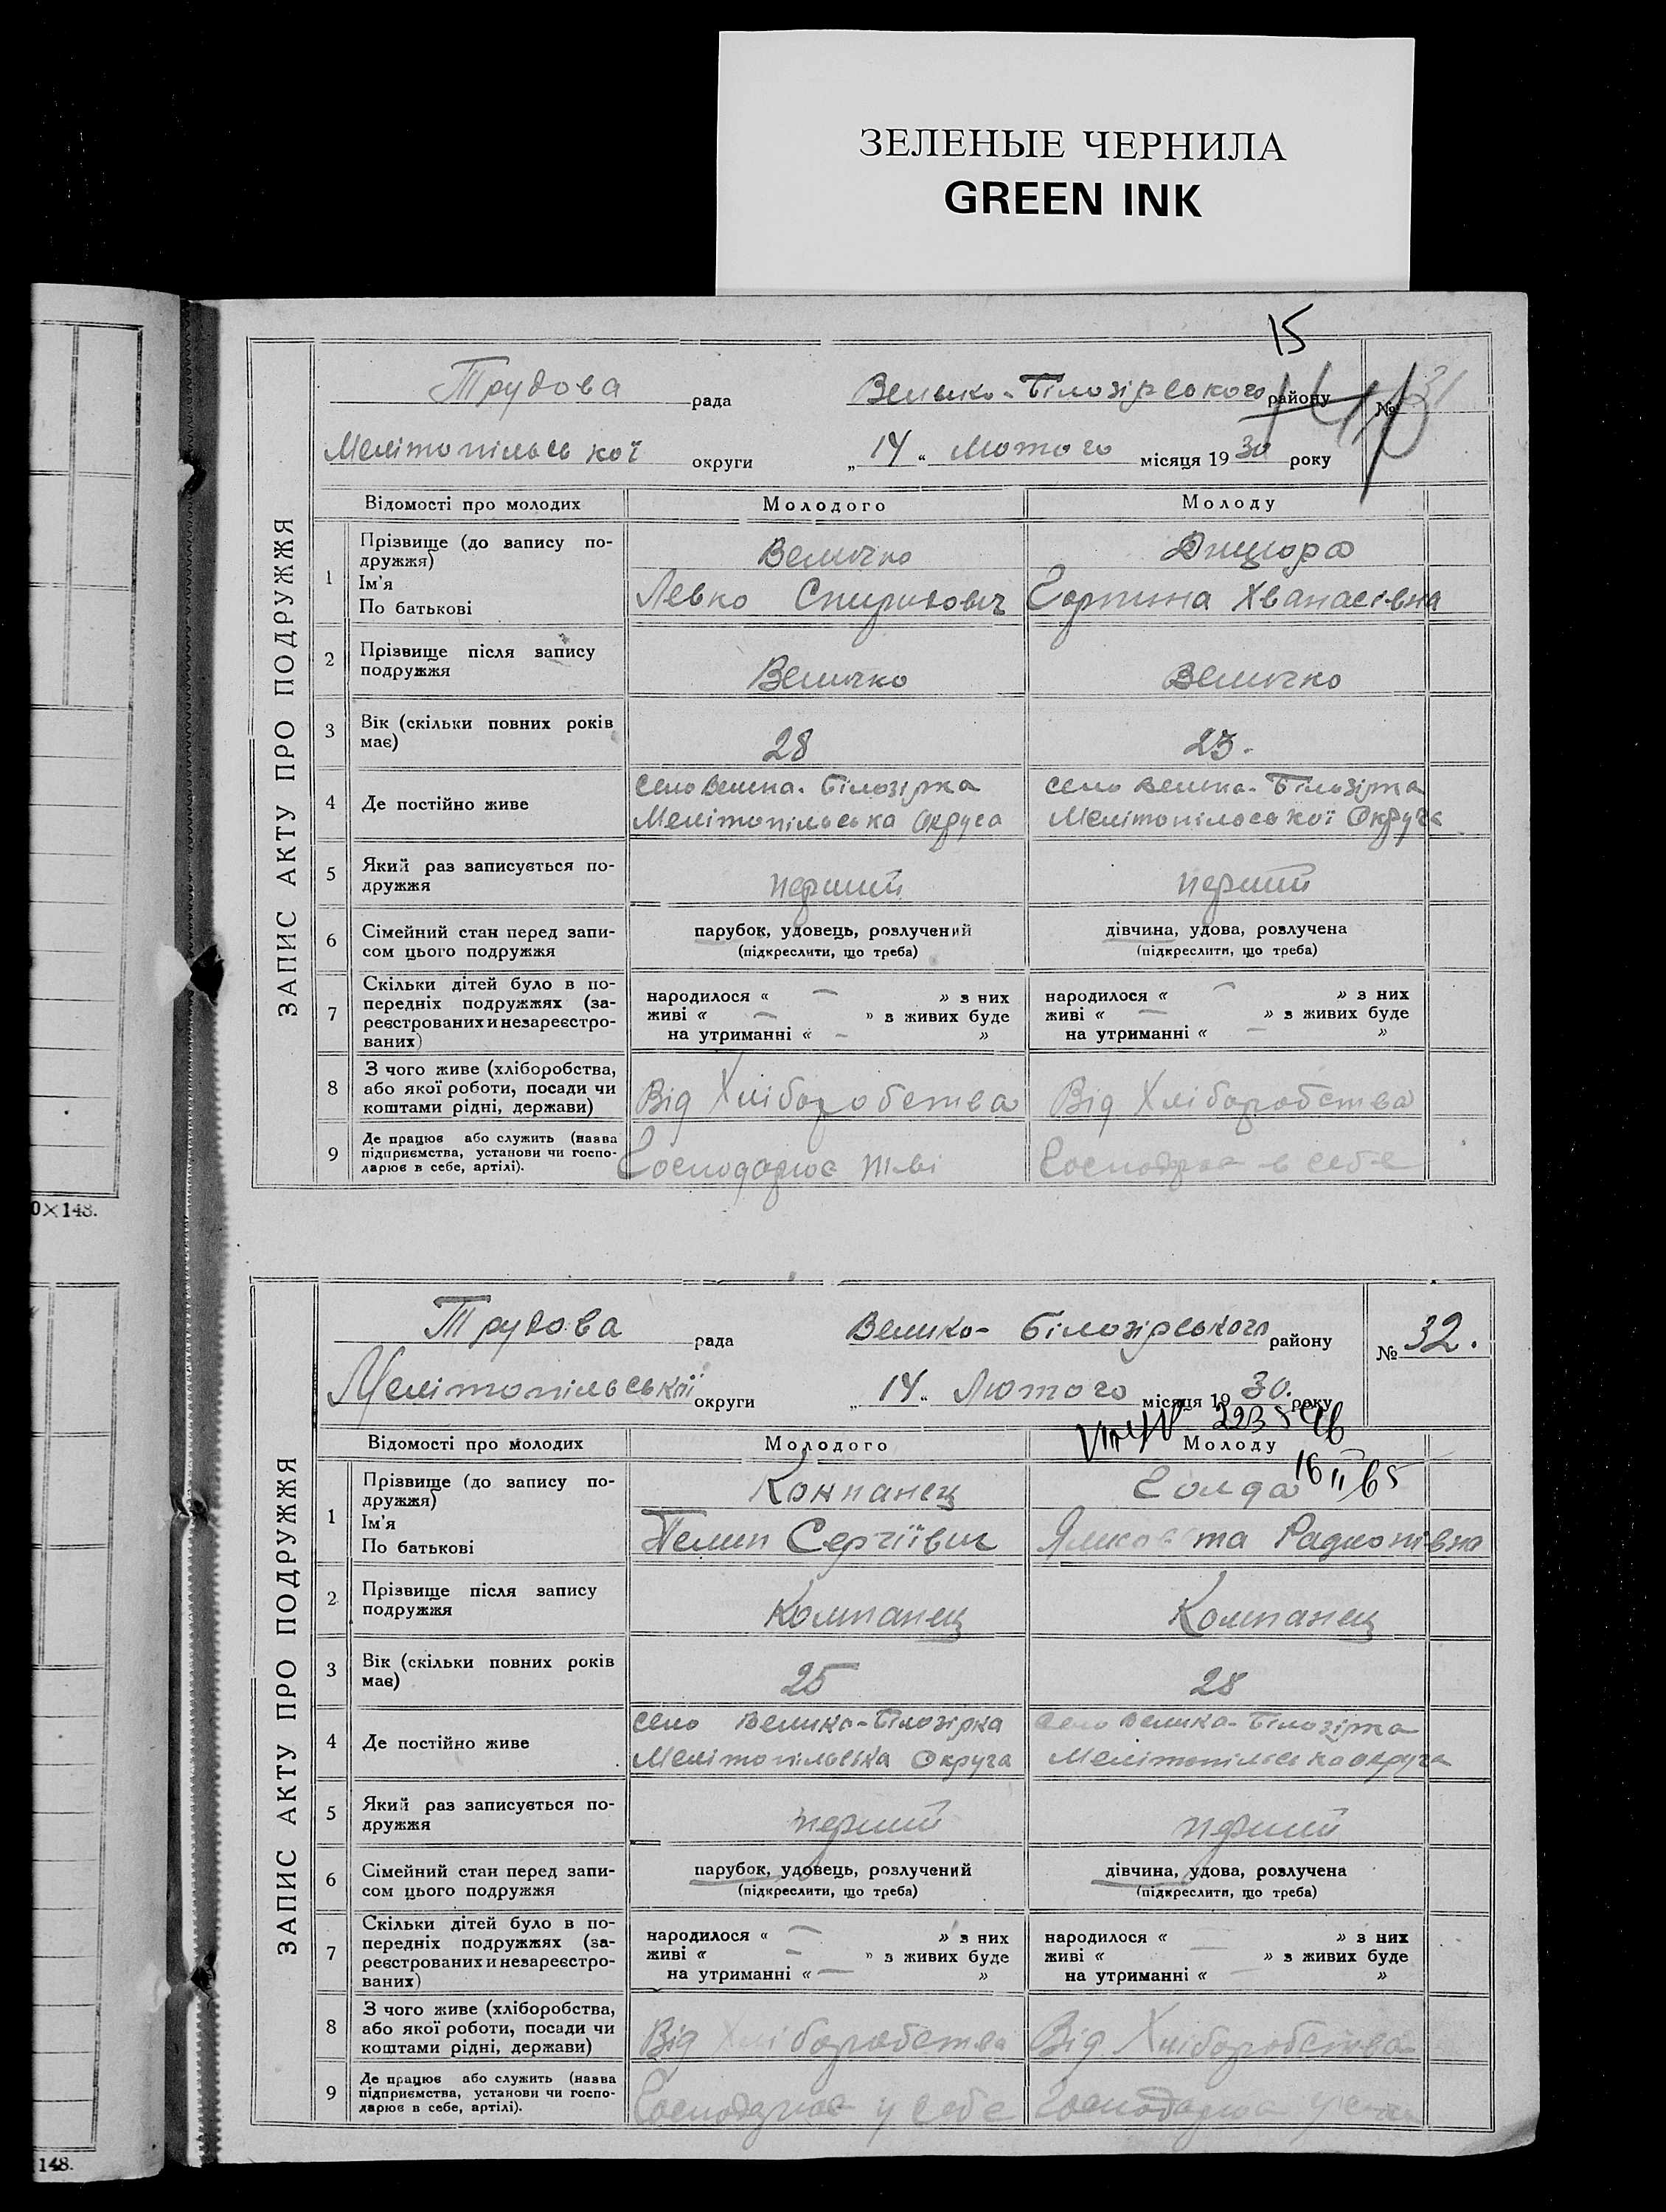 ЗЕЛЕНЫЕ ЧЕРНИЛА
GREEN INK
15
Трудова рада Велико-Білозірського району № 31
Мелітопільської округи „14“ Лютого місяця 1930 року
ЗАПИС АКТУ ПРО ПОДРУЖЖЯ
Відомості про молодих Молодого Молоду
1 Прізвище (до запису подружжя) Величко
Ім'я
По батькові Левко Спиридович Горпина Хванасівна
2 Прізвище після запису подружжя Величко Величко
3 Вік (скільки повних років має) 28 23.
4 Де постійно живе Село Велика-Білозірка Село Велика-Білозірка
Мелітопільська Округа Мелітопільської Округа
5 Який раз записується подружжя перший перший
6 Сімейний стан перед записом цього подружжя парубок, удовець, розлучений дівчина, удова, розлучена
(підкреслити, що треба) (підкреслити, що треба)
7 Скільки дітей було в попередніх подружжях (зареєстрованих и незареєстрованих) народилося « — » з них народилося « — » з них
живі « — » з живих буде живі « — » з живих буде
на утриманні « — » на утриманні « — »
8 З чого живе (хліборобства, або якої роботи, посади чи коштами рідні, держави) Від Хліборобства Від Хліборобства
9 Де працює або служить (назва підприємства, установи чи господарює в себе, артілі). Господарює Господарює в себе
0×148.
Трудова рада Велико-Білозірського району № 32.
Мелітопільської округи „14“ Лютого місяця 1930. року
ЗАПИС АКТУ ПРО ПОДРУЖЖЯ
Відомості про молодих Молодого Молоду
16 II 65
1 Прізвище (до запису подружжя) Компанец Голда
Ім'я
По батькові Пелип Сергіївич Радионівна
2 Прізвище після запису подружжя Компанец Компанец
3 Вік (скільки повних років має) 25 28
4 Де постійно живе Село Велика-Білозірка Село Велика-Білозірка
Мелітопільська Округа Мелітопільська округа
5 Який раз записується подружжя перший перший
6 Сімейний стан перед записом цього подружжя парубок, удовець, розлучений дівчина, удова, розлучена
(підкреслити, що треба) (підкреслити, що треба)
7 Скільки дітей було в попередніх подружжях (зареєстрованих и незареєстрованих) народилося « — » з них народилося « — » з них
живі « — » з живих буде живі « » з живих буде
на утриманні « — » на утриманні « — »
8 З чого живе (хліборобства, або якої роботи, посади чи коштами рідні, держави) Від Хліборобства Від Хліборобства
9 Де працює або служить (назва підприємства, установи чи господарює в себе, артілі). Господарює у себе Господарює
148.